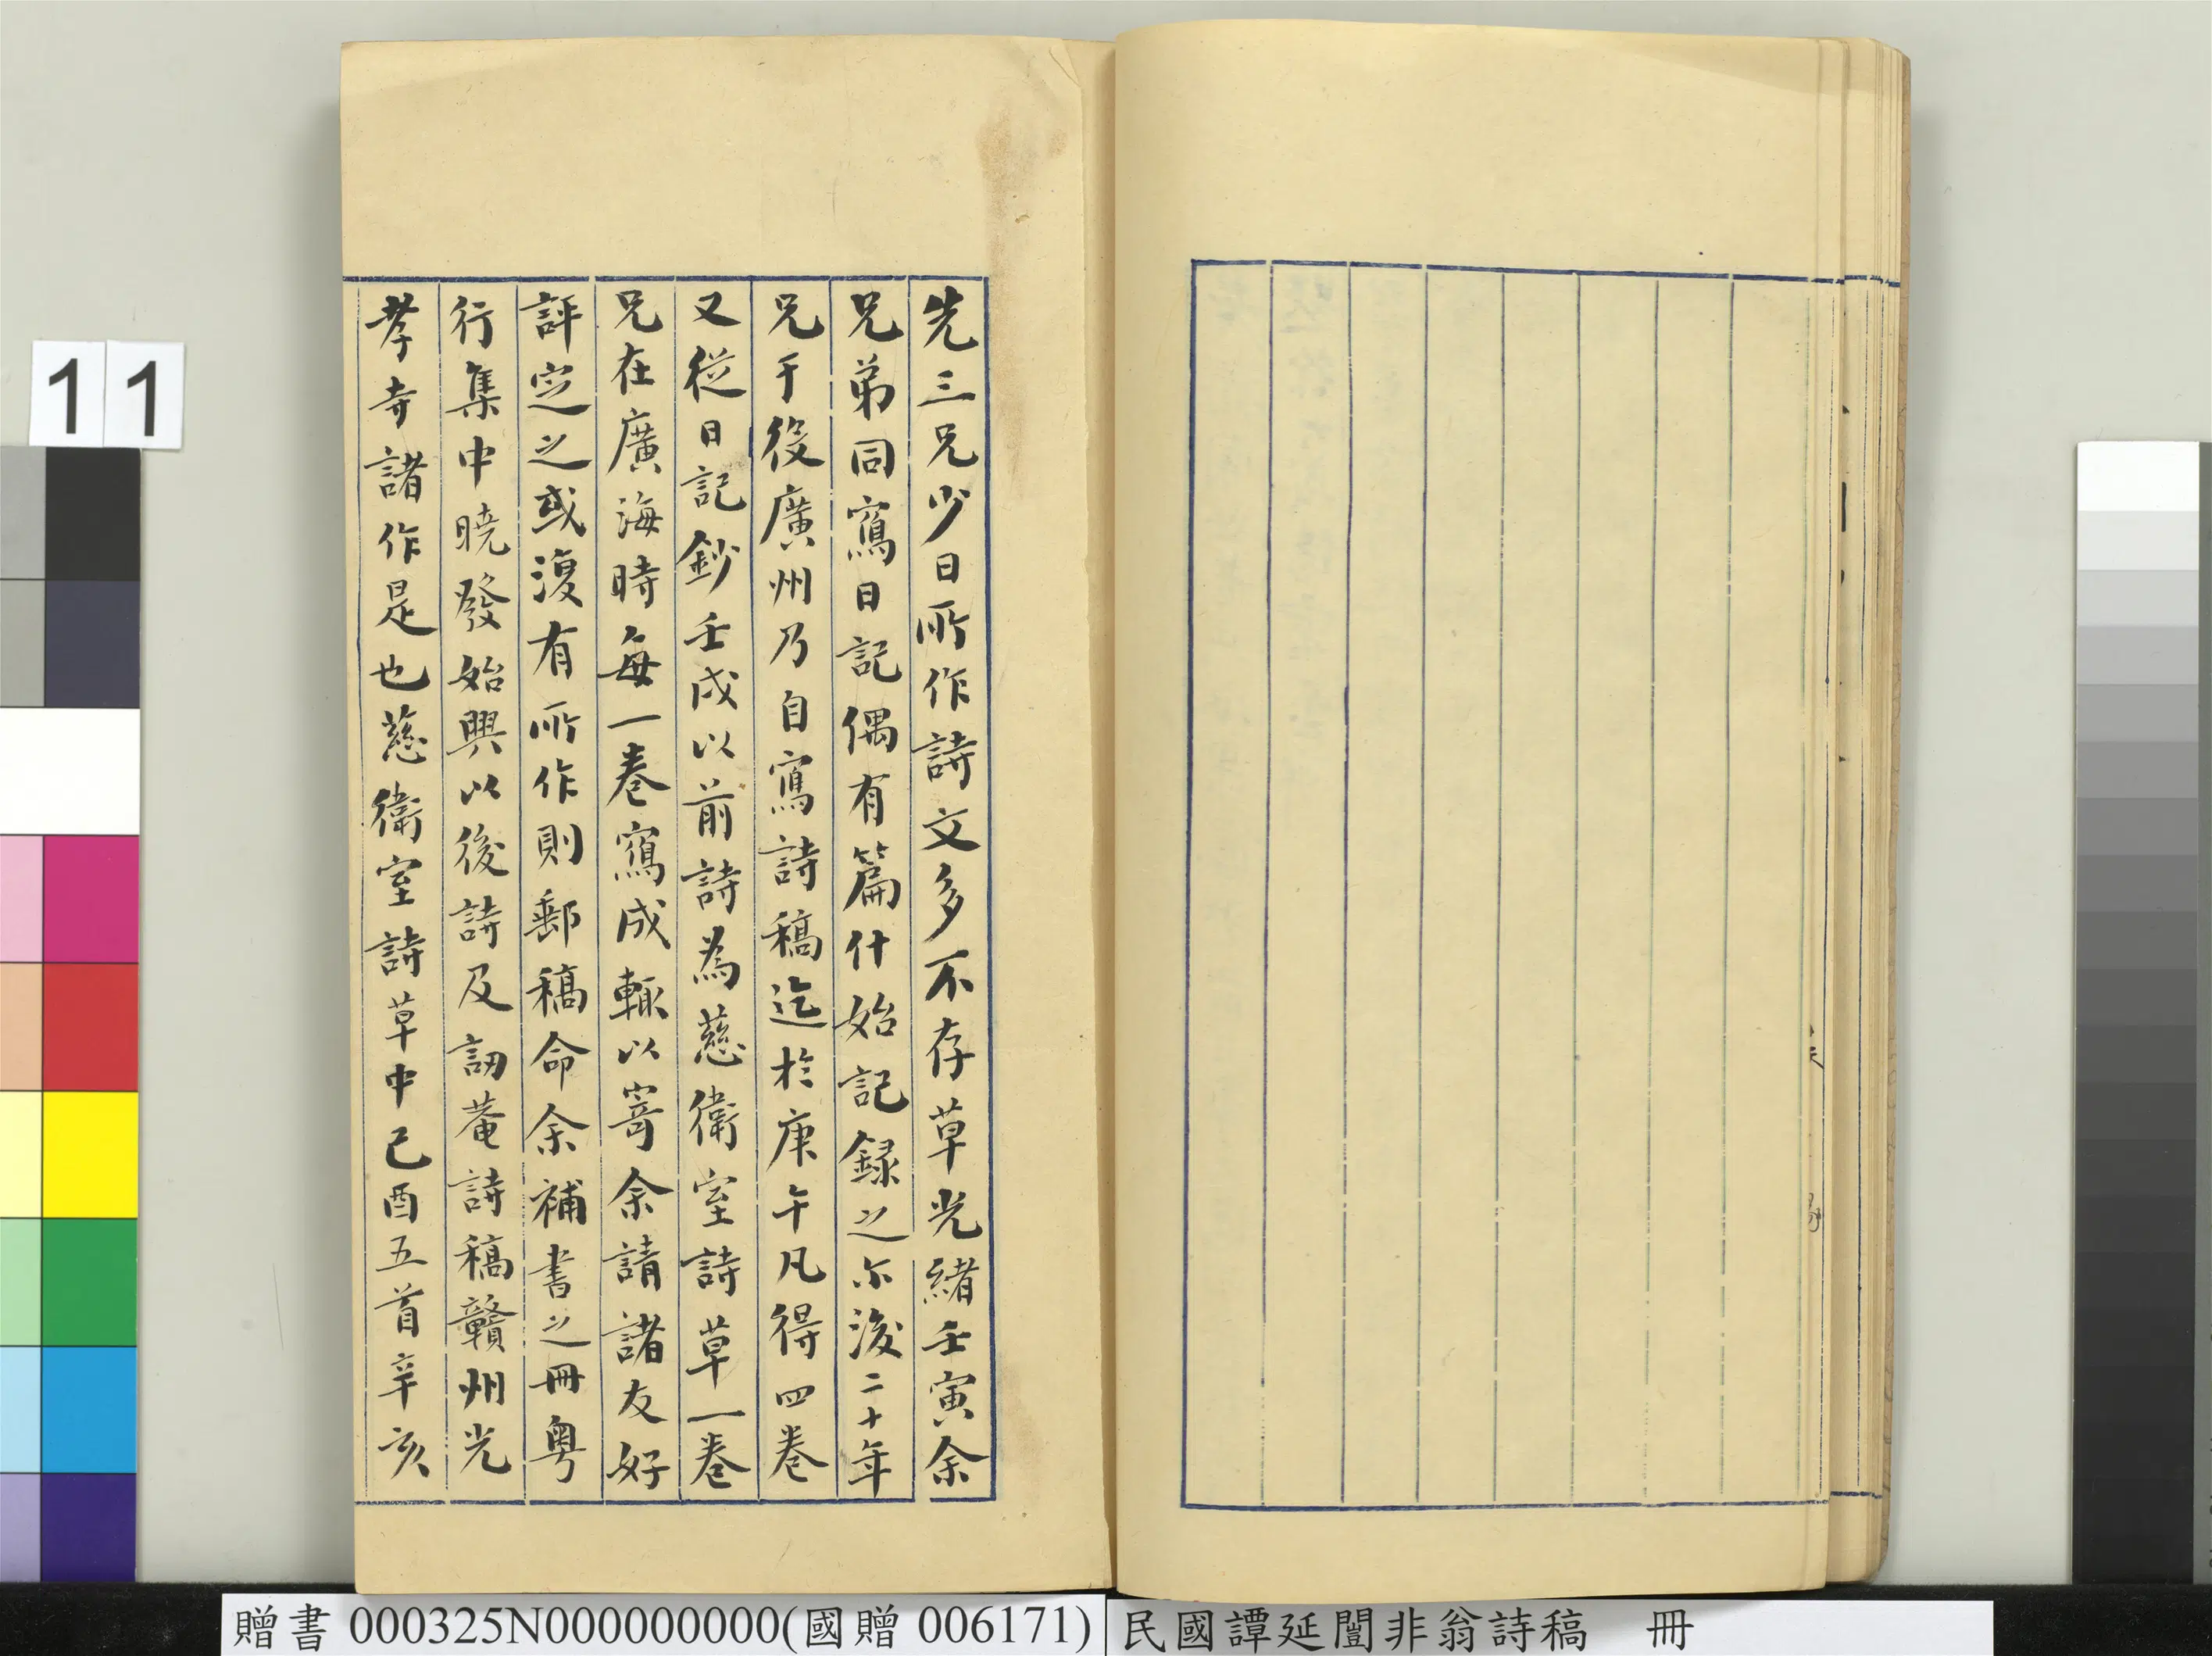 先三兄少日所作詩文多不存草光緒壬寅余
兄弟同寫日記偶有篇什始記録之尓後二十年
兄于役廣州乃自寫詩稿迄於庚午凡得四卷
又從日記鈔壬戌以前詩為慈衛室詩草一卷
兄在廣海時每一卷寫成輒以寄余請諸友好
評定之或復有所作則郵稿命余補書之冊粵
行集中曉發始興以後詩及訒菴詩稿贛州光
孝寺諸作是也慈衛室詩草中己酉五首辛亥
11
贈書 000325N000000000(國贈 006171)
民國譚延闓非翁詩稿 冊